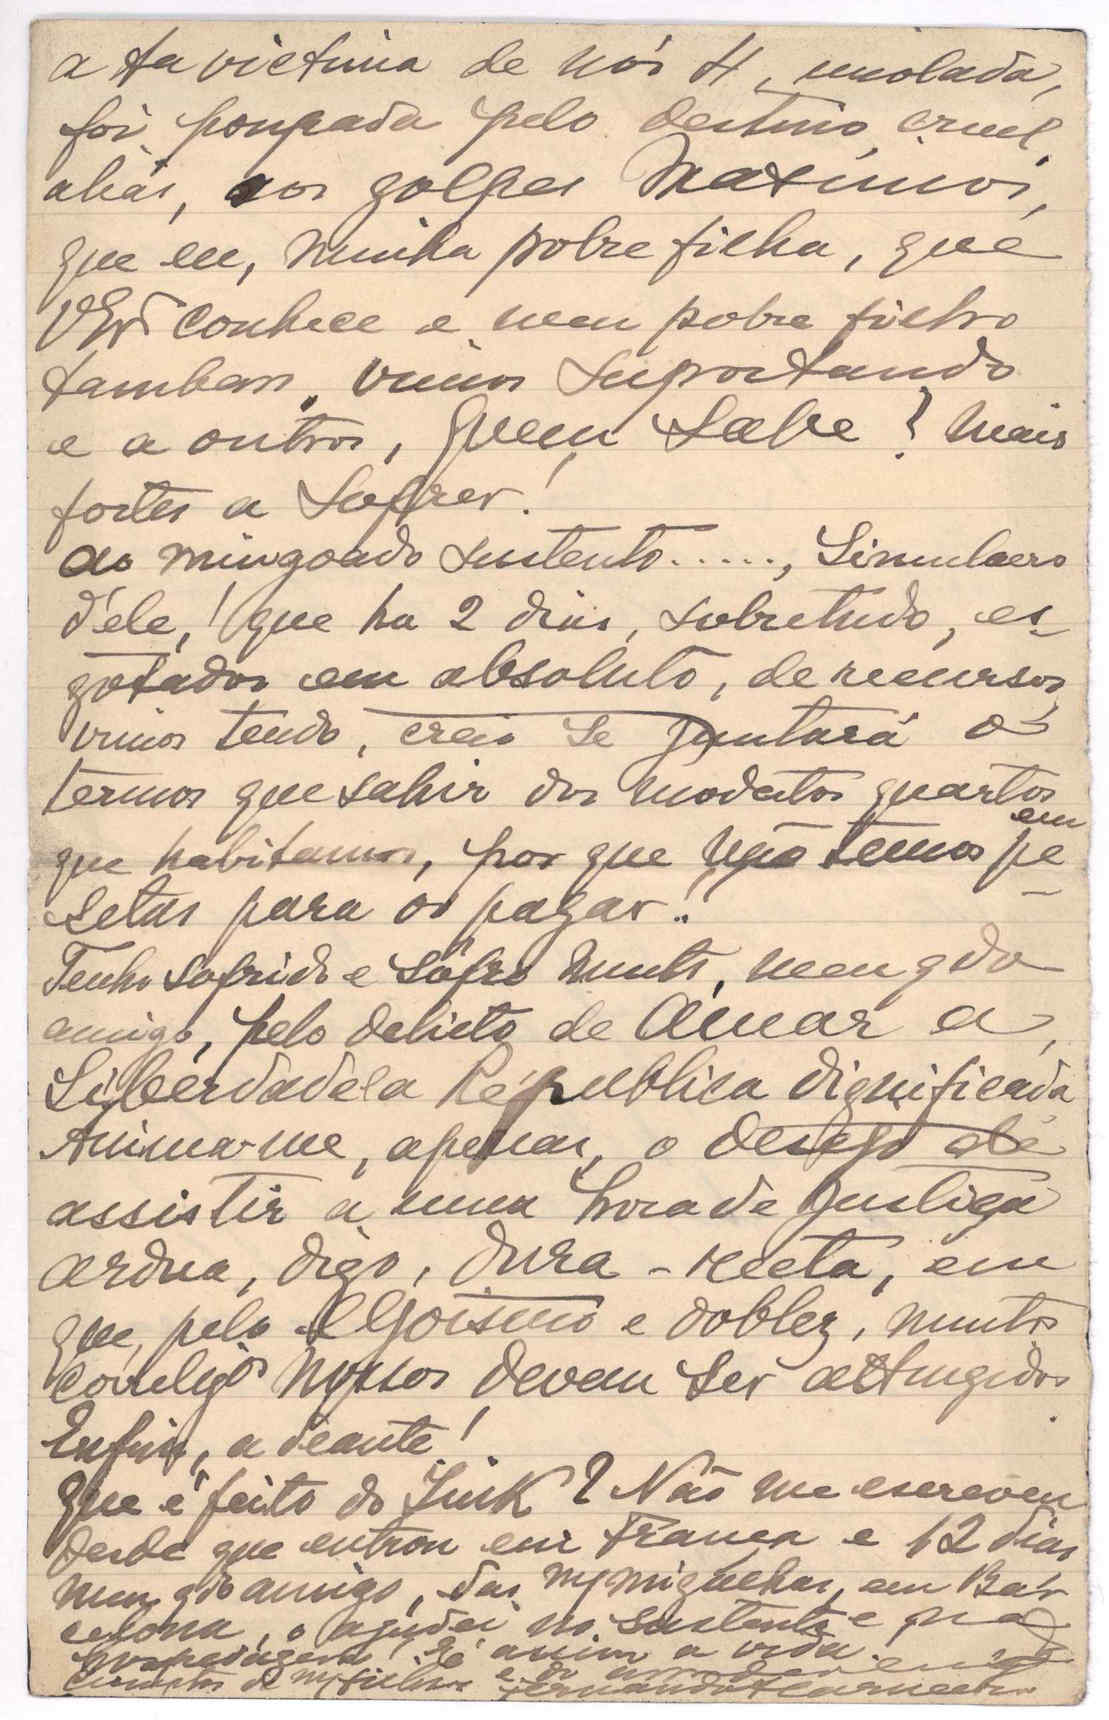 a ta victima de nós 4, imolada,
foi poupada pelo destino, cruel,
aliás, aos golpes Maximos,
que eu, minha pobre filha, que
VExª conhece e meu pobre filho
tambem, vimos suportando
e a outros, Quem Sabe? mais
fortes a Soffrer!
ao mingoado sustento....., Simulacro
d'ele,! que ha 2 dias, sobretudo, es-
gotados em absoluto, de recursos,
vimos tendo, creio se juntará o
termos que sahir dos modestos quartos
que habitamos, por que não temos em pe-
setas para os pagar!
Tenho sofrido e sofro muito, meu qdo
amigo, pelo delicto de Amar a
Liberdade la Republica dignificada
Anima-me, apenas, o desejo de
assistir a uma hora de justiça
ardua, digo, dura - recta, em
que, pelo Egoismo e doblez, muitos
corrélegos Nossos devem ser attingidos.
Enfim, a deante!
Que é feito do Link? Não me escreveu
desde que entrou em França e 12 dias
meu qdo amigo, das migalhas, em Bar-
celona, o ajudei no sustento e na
hospedagem! É assim a vida.
de mº filhos e do
Fernando